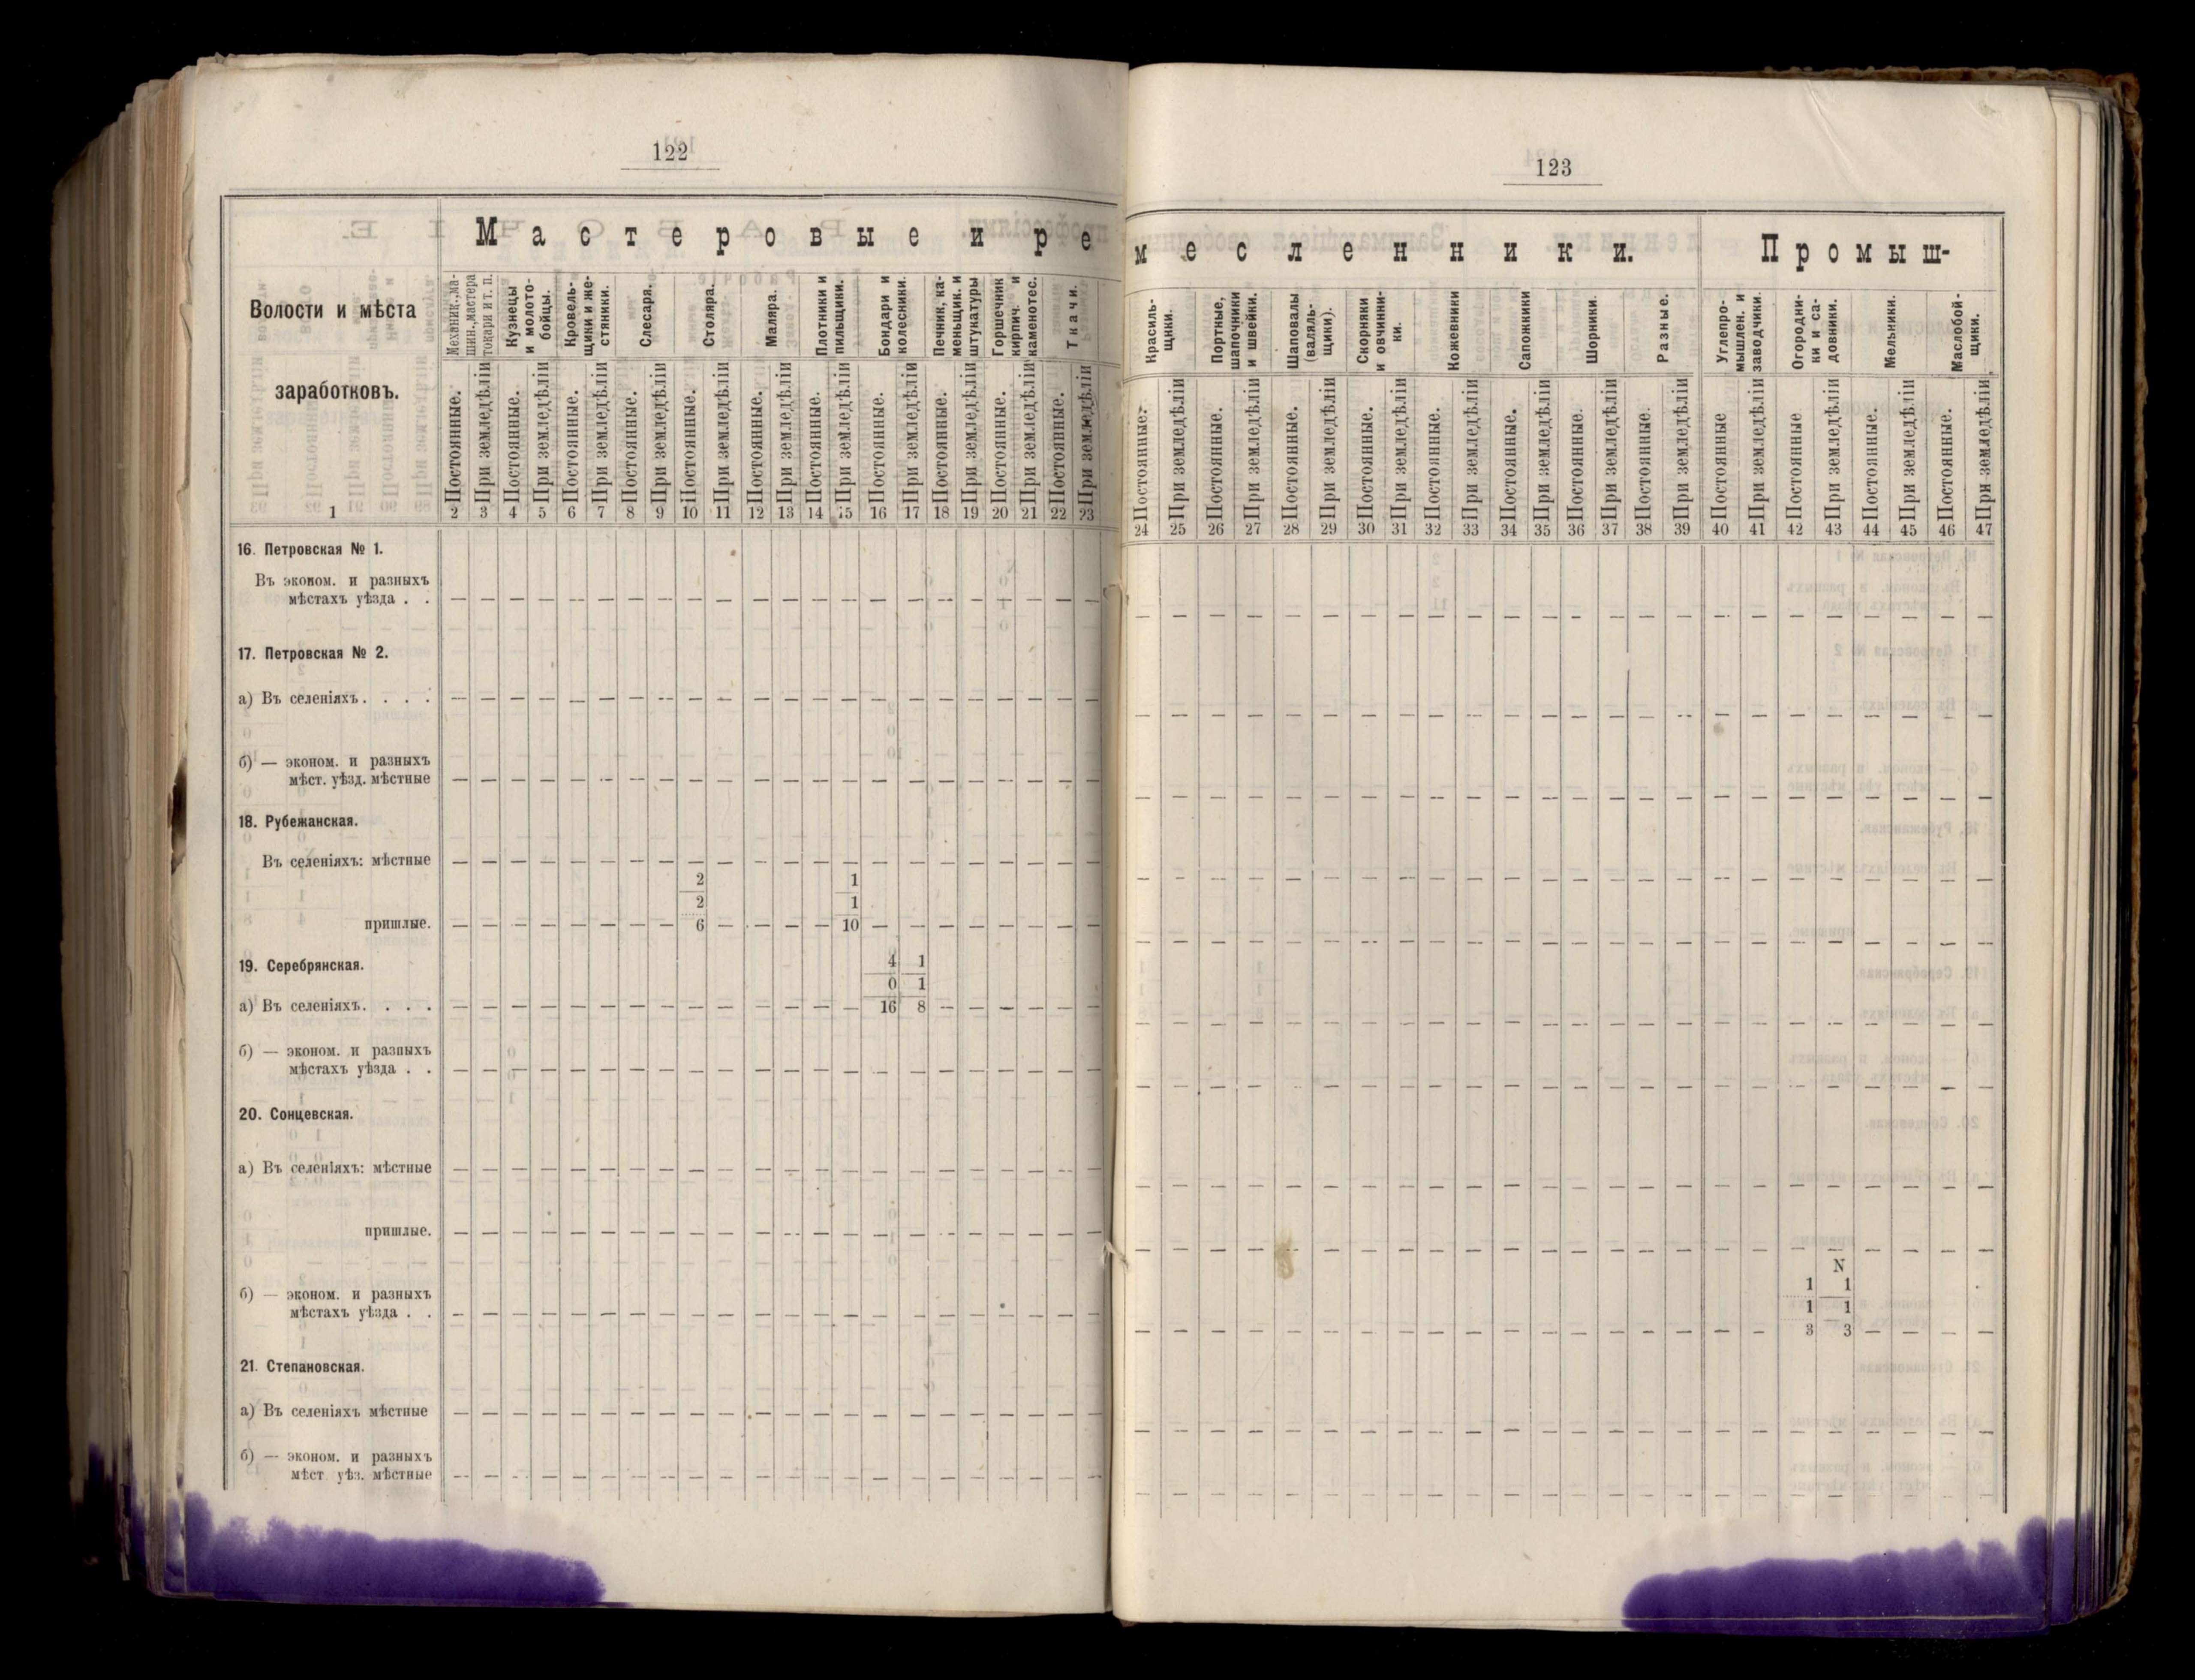 122
Мастеровые и ре
Волости и мѣста
заработковъ.
Механик.,ма-
шин.,мастера
токари и т. п.
Кузнецы
и молото-
бойцы.
Кровель-
щики и же-
стяники.
Слесаря.
Столяра.
Маляра.
Плотники и
пильщики.
Бондари и
колесники.
Печник, ка-
меньщик. и
штукатуры
Горшечник
кирпич. и
каменотес.
Ткачи.
Постоянные. При земледѣліи Постоянные. При земледѣліи Постоянные. При земледѣліи Постоянные. При земледѣліи Постоянные. При земледѣліи Постоянные. При земледѣліи Постоянные. При земледѣліи Постоянные. При земледѣліи Постоянные. При земледѣліи Постоянные. При земледѣліи Постоянные. При земледѣліи
1 2 3 4 5 6 7 8 9 10 11 12 13 14 15 16 17 18 19 20 21 22 23
16. Петровская № 1.
Въ эконом. и разныхъ
мѣстахъ уѣзда . . — — — — — — — — — — — — — — — — — — — — — —
17. Петровская № 2.
а) Въ селеніяхъ. . . . — — — — — — — — — — — — — — — — — — — — — —
б) — эконом. и разныхъ
мѣст. уѣзд. мѣстные — — — — — — — — — — — — — — — — — — — — — —
18. Рубежанская.
Въ селеніяхъ: мѣстные — — — — — — — — — — — — — — — — — — — — — —
2 1
2 1
пришлые. — — — — — — — — 6 — — — — 10 — — — — — — — —
19. Серебрянская. 4 1
0 1
а) Въ селеніяхъ. . . . — — — — — — — — — — — — — — 16 8 — — — — — —
б) — эконом. и разныхъ
мѣстахъ уѣзда . . — — — — — — — — — — — — — — — — — — — — — —
20. Сонцевская.
а) Въ селеніяхъ: мѣстные — — — — — — — — — — — — — — — — — — — — — —
пришлые. — — — — — — — — — — — — — — — — — — — — — —
б) — эконом. и разныхъ
мѣстахъ уѣзда . . — — — — — — — — — — — — — — — — — — — — — —
21. Степановская.
а) Въ селеніяхъ мѣстные — — — — — — — — — — — — — — — — — — — — — —
б) — эконом. и разныхъ
мѣст уѣз. мѣстные — — — — — — — — — — — — — — — — — — — — — —
123
месленники.
Промыш-
Красиль-
щики.
Портные,
шапочники
и швейки.
Шаповалы
(валяль-
щики).
Скорняки
и овчинни-
ки.
Кожевники
Сапожники
Шорники.
Разные.
Углепро-
мышлен. и
заводчики.
Огородни-
ки и са-
довники.
Мельники.
Маслобой-
щики.
Постоянные. При земледѣліи Постоянные. При земледѣліи Постоянные. При земледѣліи Постоянные. При земледѣліи Постоянные. При земледѣліи Постоянные. При земледѣліи Постоянные. При земледѣліи Постоянные. При земледѣліи Постоянные При земледѣліи Постоянные При земледѣліи Постоянные. При земледѣліи Постоянные. При земледѣліи
24 25 26 27 28 29 30 31 32 33 34 35 36 37 38 39 40 41 42 43 44 45 46 47
— — — — — — — — — — — — — — — — — — — — — — — —
— — — — — — — — — — — — — — — — — — — — — — — —
— — — — — — — — — — — — — — — — — — — — — — — —
— — — — — — — — — — — — — — — — — — — — — — — —
— — — — — — — — — — — — — — — — — — — — — — — —
— — — — — — — — — — — — — — — — — — — — — — — —
— — — — — — — — — — — — — — — — — — — — — — — —
— — — — — — — — — — — — — — — — — — — — — — — —
— — — — — — — — — — — — — — — — — — — — — — — —
N
1 1
1 1
— — — — — — — — — — — — — — — — — — 3 3 — — — —
— — — — — — — — — — — — — — — — — — — — — — — —
— — — — — — — — — — — — — — — — — — — — — — — —